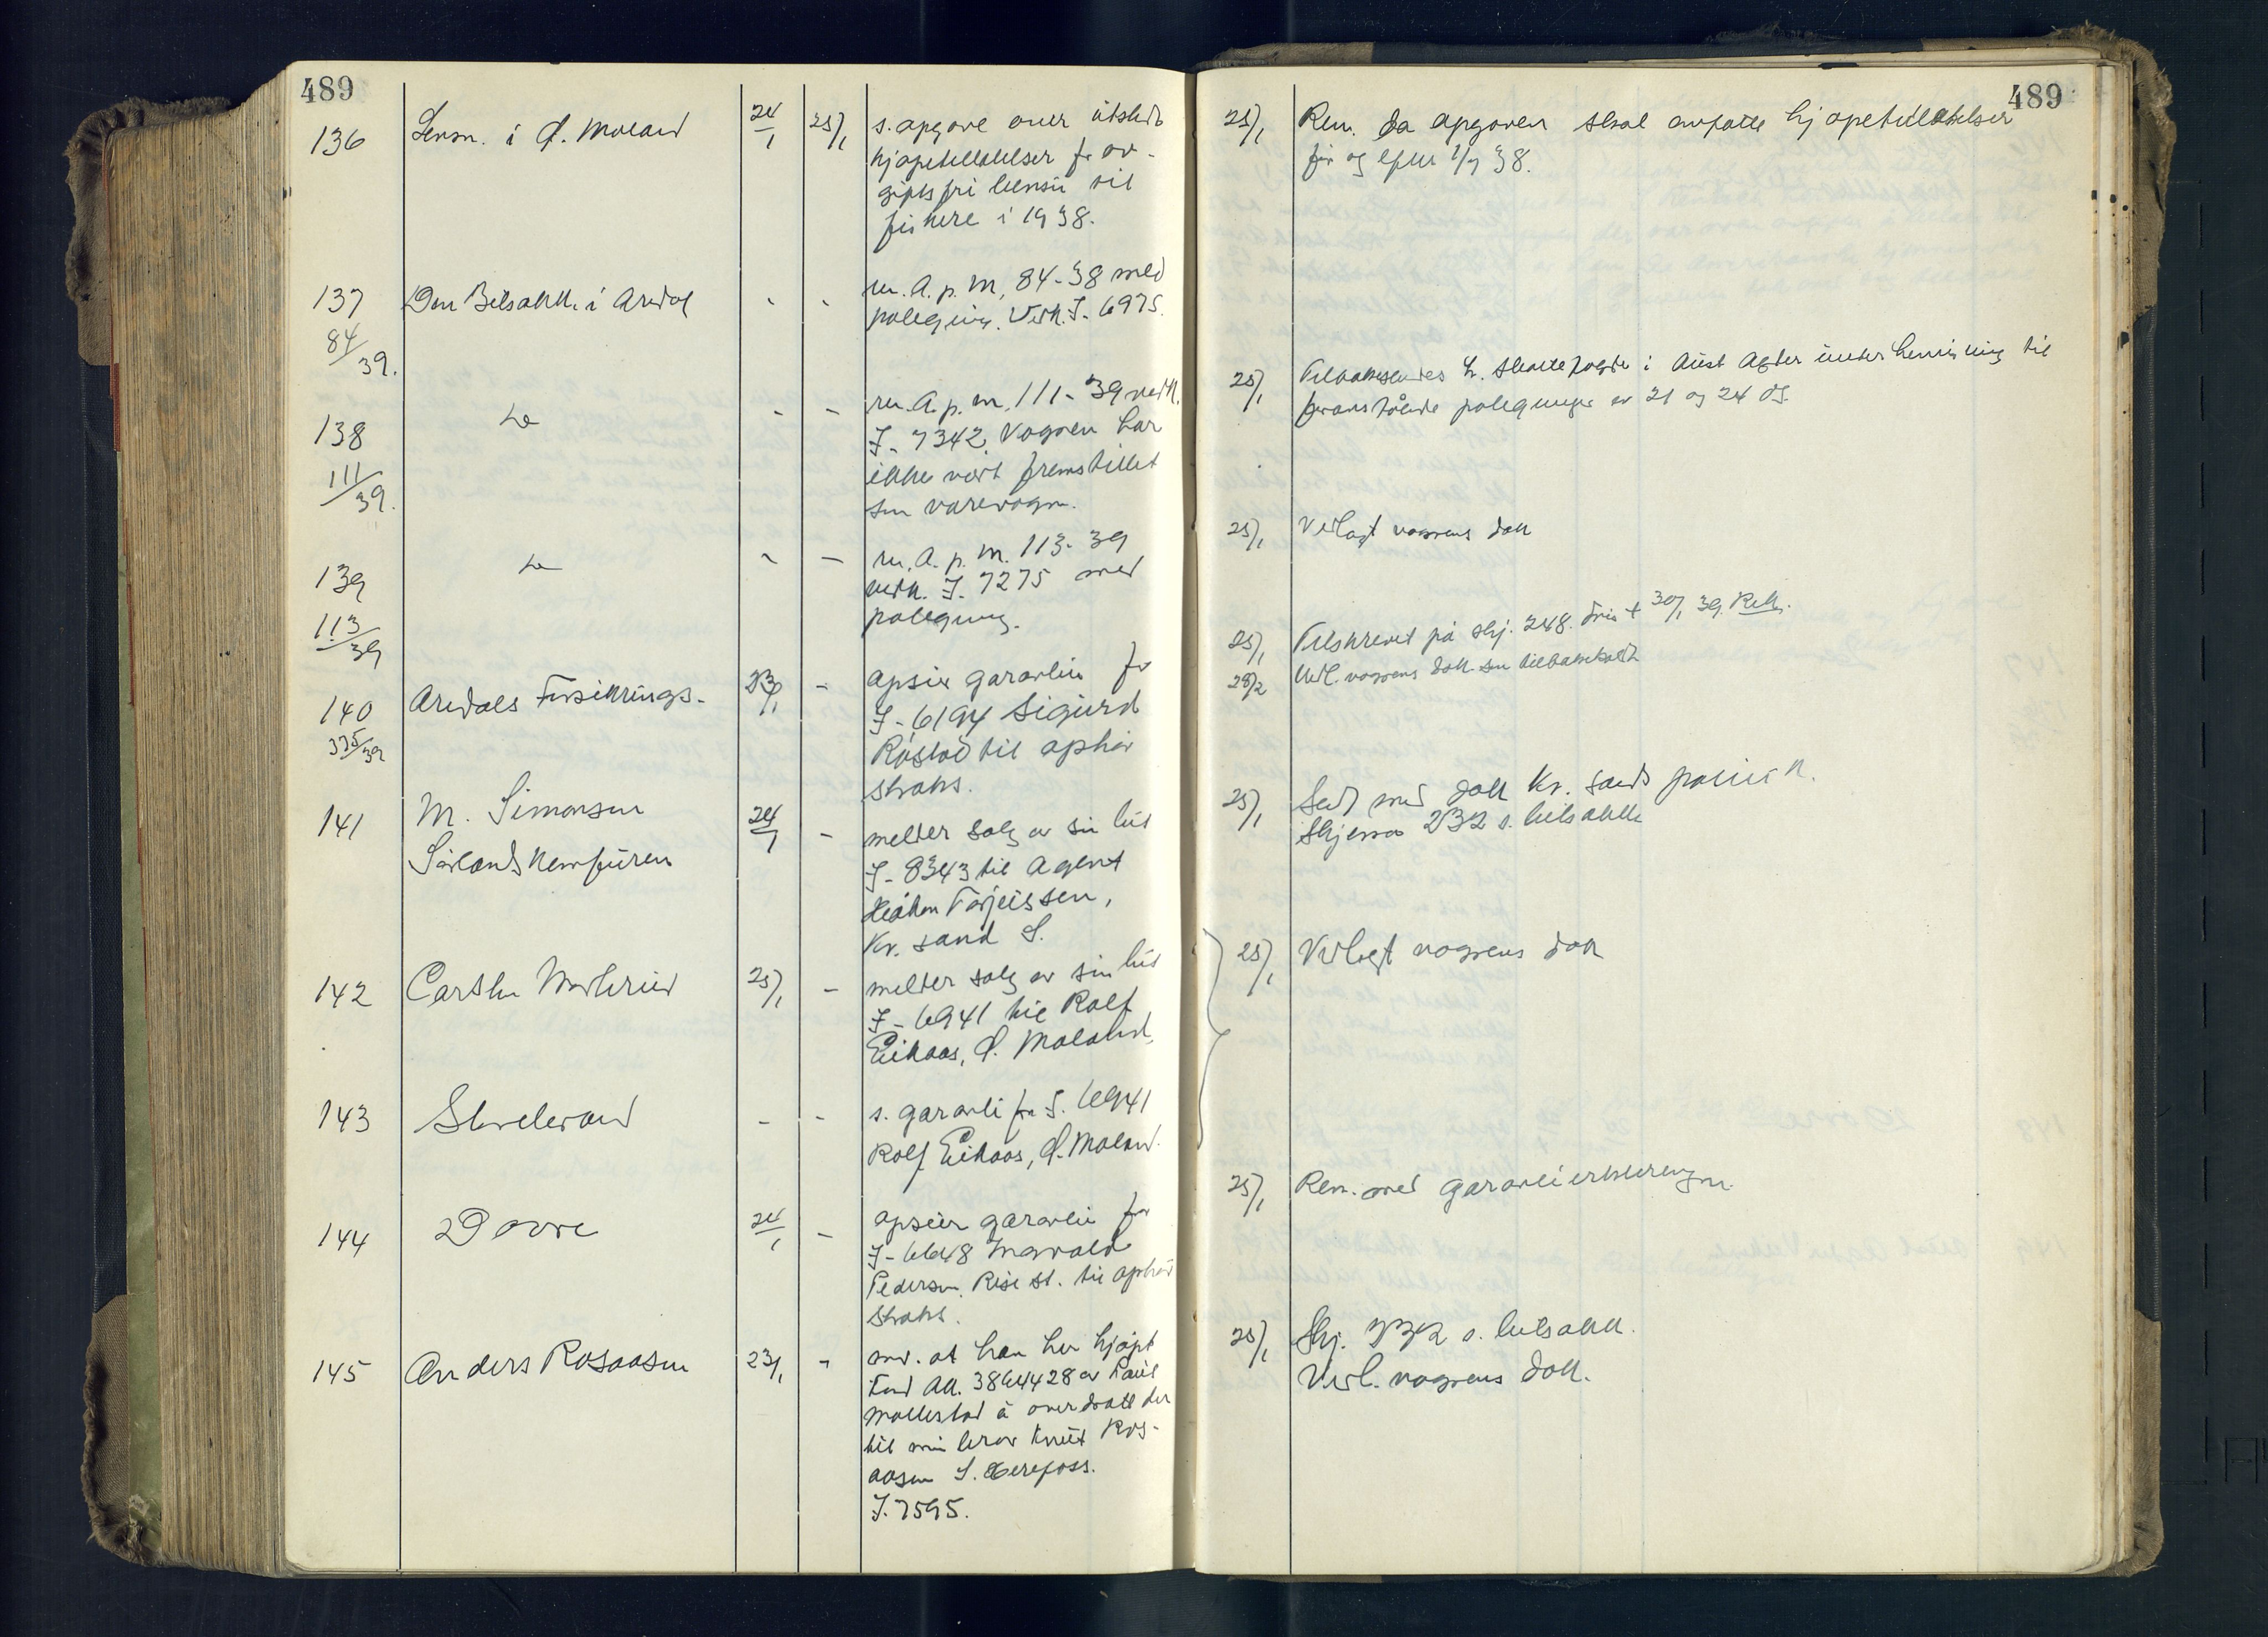 489
136 Lensm. i Ø. Moland 24/1 25/1 s. opgave over utstedte
kjøpetillatelser for av-
giftsfri bensin til
fiskere i 1938.
137 Den Bilsakk. i Arendal - - in. A.p.m. 84-38 med
84/39. påtegning. Vedk. I-6975.
138 do - - in. A.p.m. 111-39 vedk.
111/39. I-7342. Vognen har
ikke vært fremstillet
som varevogn.
139 do - - in. A.p.m. 113-39
113/39 vedk. I-7275 med
påtegning.
140 Arendals Forsikrings- 23/1 - opsier garantien for
375/39 I-6194 Sigurd
Røstad til ophør
straks.
141 M. Simonsen 24/1 - melder salg av sin bil
Sørlandskonfituren I-8343 til Agent
Håkon Torjussen,
Kr. sand S.
142 Carsten 25/1 - melder salg av sin bil
I-6941 til Rolf
Eikaas, Ø. Moland.
143 Storebrand - - s. garanti for I-6941
Rolf Eikaas, Ø. Moland.
144 Dovre 24/1 - opsier garantien for
I-6648 Ingvald
Pedersen, Rise st. til ophør
straks.
145 Anders Rosaasen 23/1 - med. at han har kjøpt
Ford AA. 3864428 av Paul
Mollestad å overdratt den
til min bror Knut Ros-
aasen S. Herefoss.
I-7595.
489
25/1 Ren. da opgaven skal omfatte kjøpetillatelser
før og efter 1/7 38.
25/1 Tilbakesendes h. skattefogden i Aust Agder under henvisning til
foranstående påtegninger av 21 og 24 ds.
25/1 Vedlagt vognens dok
25/1 Tilskrevet på skj. 248. Frist 30/1 39. Rek.
28/2 Vedl. vognens dok. som tilbakeholdt
25/1 Sendt med dok Kr. sands politik.
Skjema 232 s. bilsakk.
25/1 Vedlagt vognens dok
25/1 Ren. med garantierklæringen.
25/1 Skj. 232 s. bilsakk.
Vedl. vognens dok.